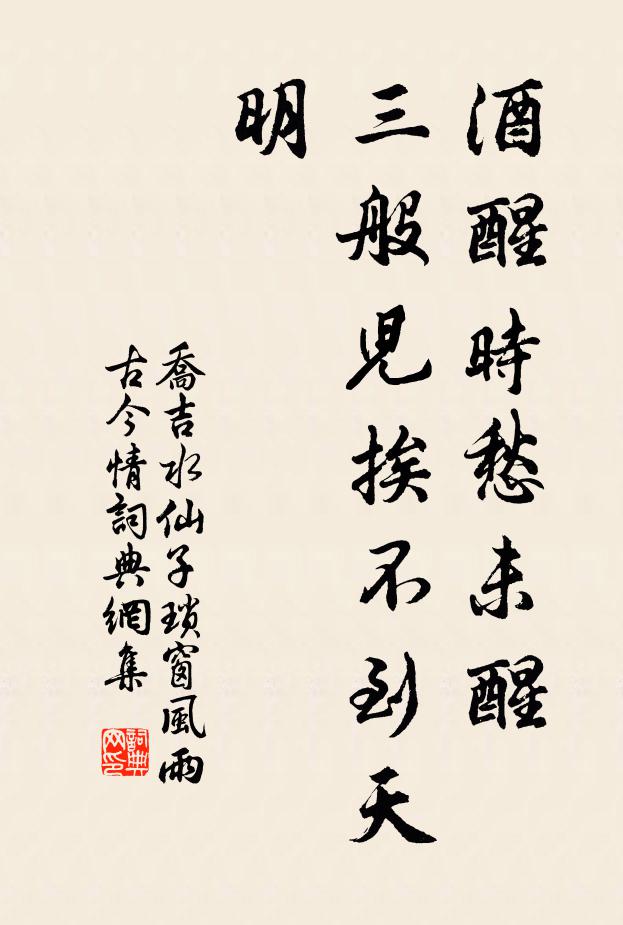 酒醒時愁未醒
三般兒挨不到天
明
喬吉水仙子瑣窗風雨
古今情詞典網集
詞典
网印